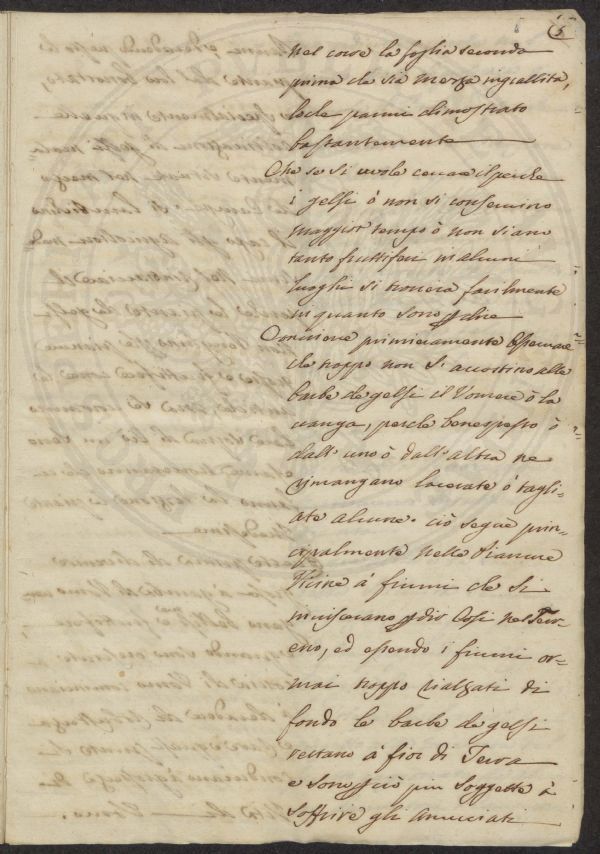 5
nel corso la foglia seconda
prima che sia mezza ingiallita,
loche parmi dimostrato
bastantemente
Che se si vuole cercare il perche
i gelsi ò non si conservino
maggior tempo ò non siano
tanto fruttiferi in alcuni
luoghi si troverà facilmente
in quanto sono p dire
Conviene primieramente osservare
che troppo non si accostino alle
barbe de gelsi il Vomere ò la
vanga, perche benespesso ò
dall' uno ò dall' altra ne
rimangano lacerate ò tagli-
ate alcune. ciò segue prin-
cipalmente nelle Pianure
Vicine à fiumi che si
p dir così nel Terr-
eno, ed essendo i fiumi or-
mai troppo rialzati di
fondo le barbe de gelsi
restano à fior di Terra
e sono p ciò più soggette à
soffrire gli annunciati